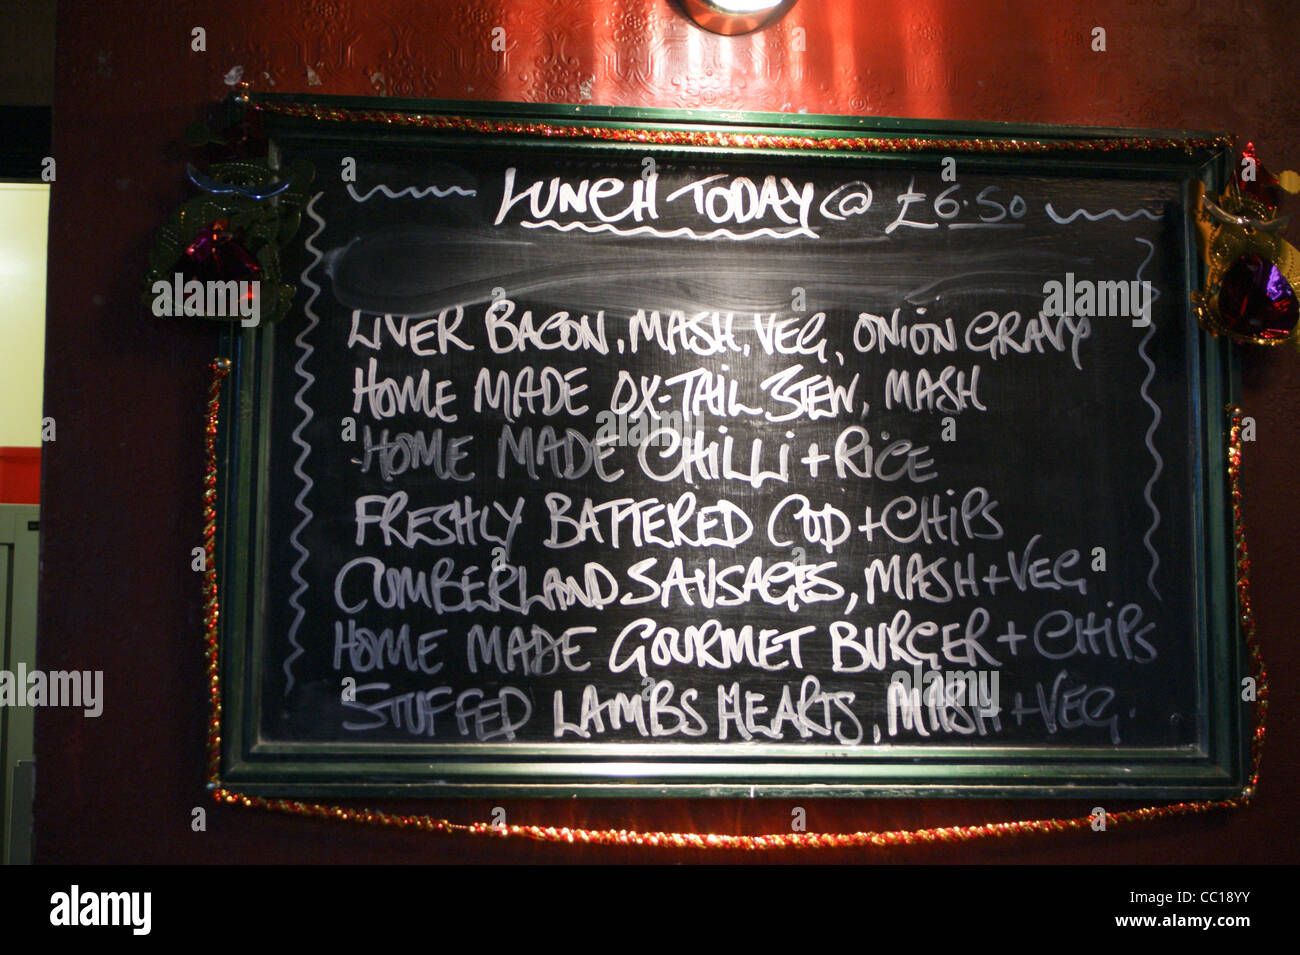 LUNCH TODAY @ £6.50
LIVER BACON, MASH, VEG, ONION GRAVY
HOME MADE OX-TAIL STEW, MASH
HOME MADE CHILLI + RICE
FRESHLY BATTERED COD + CHIPS
CUMBERLAND SAUSAGES, MASH + VEG
HOME MADE GOURMET BURGER + CHIPS
STUFFED LAMBS HEARTS, MASH + VEG.
alamy
Image ID: CC18YY
www.alamy.com